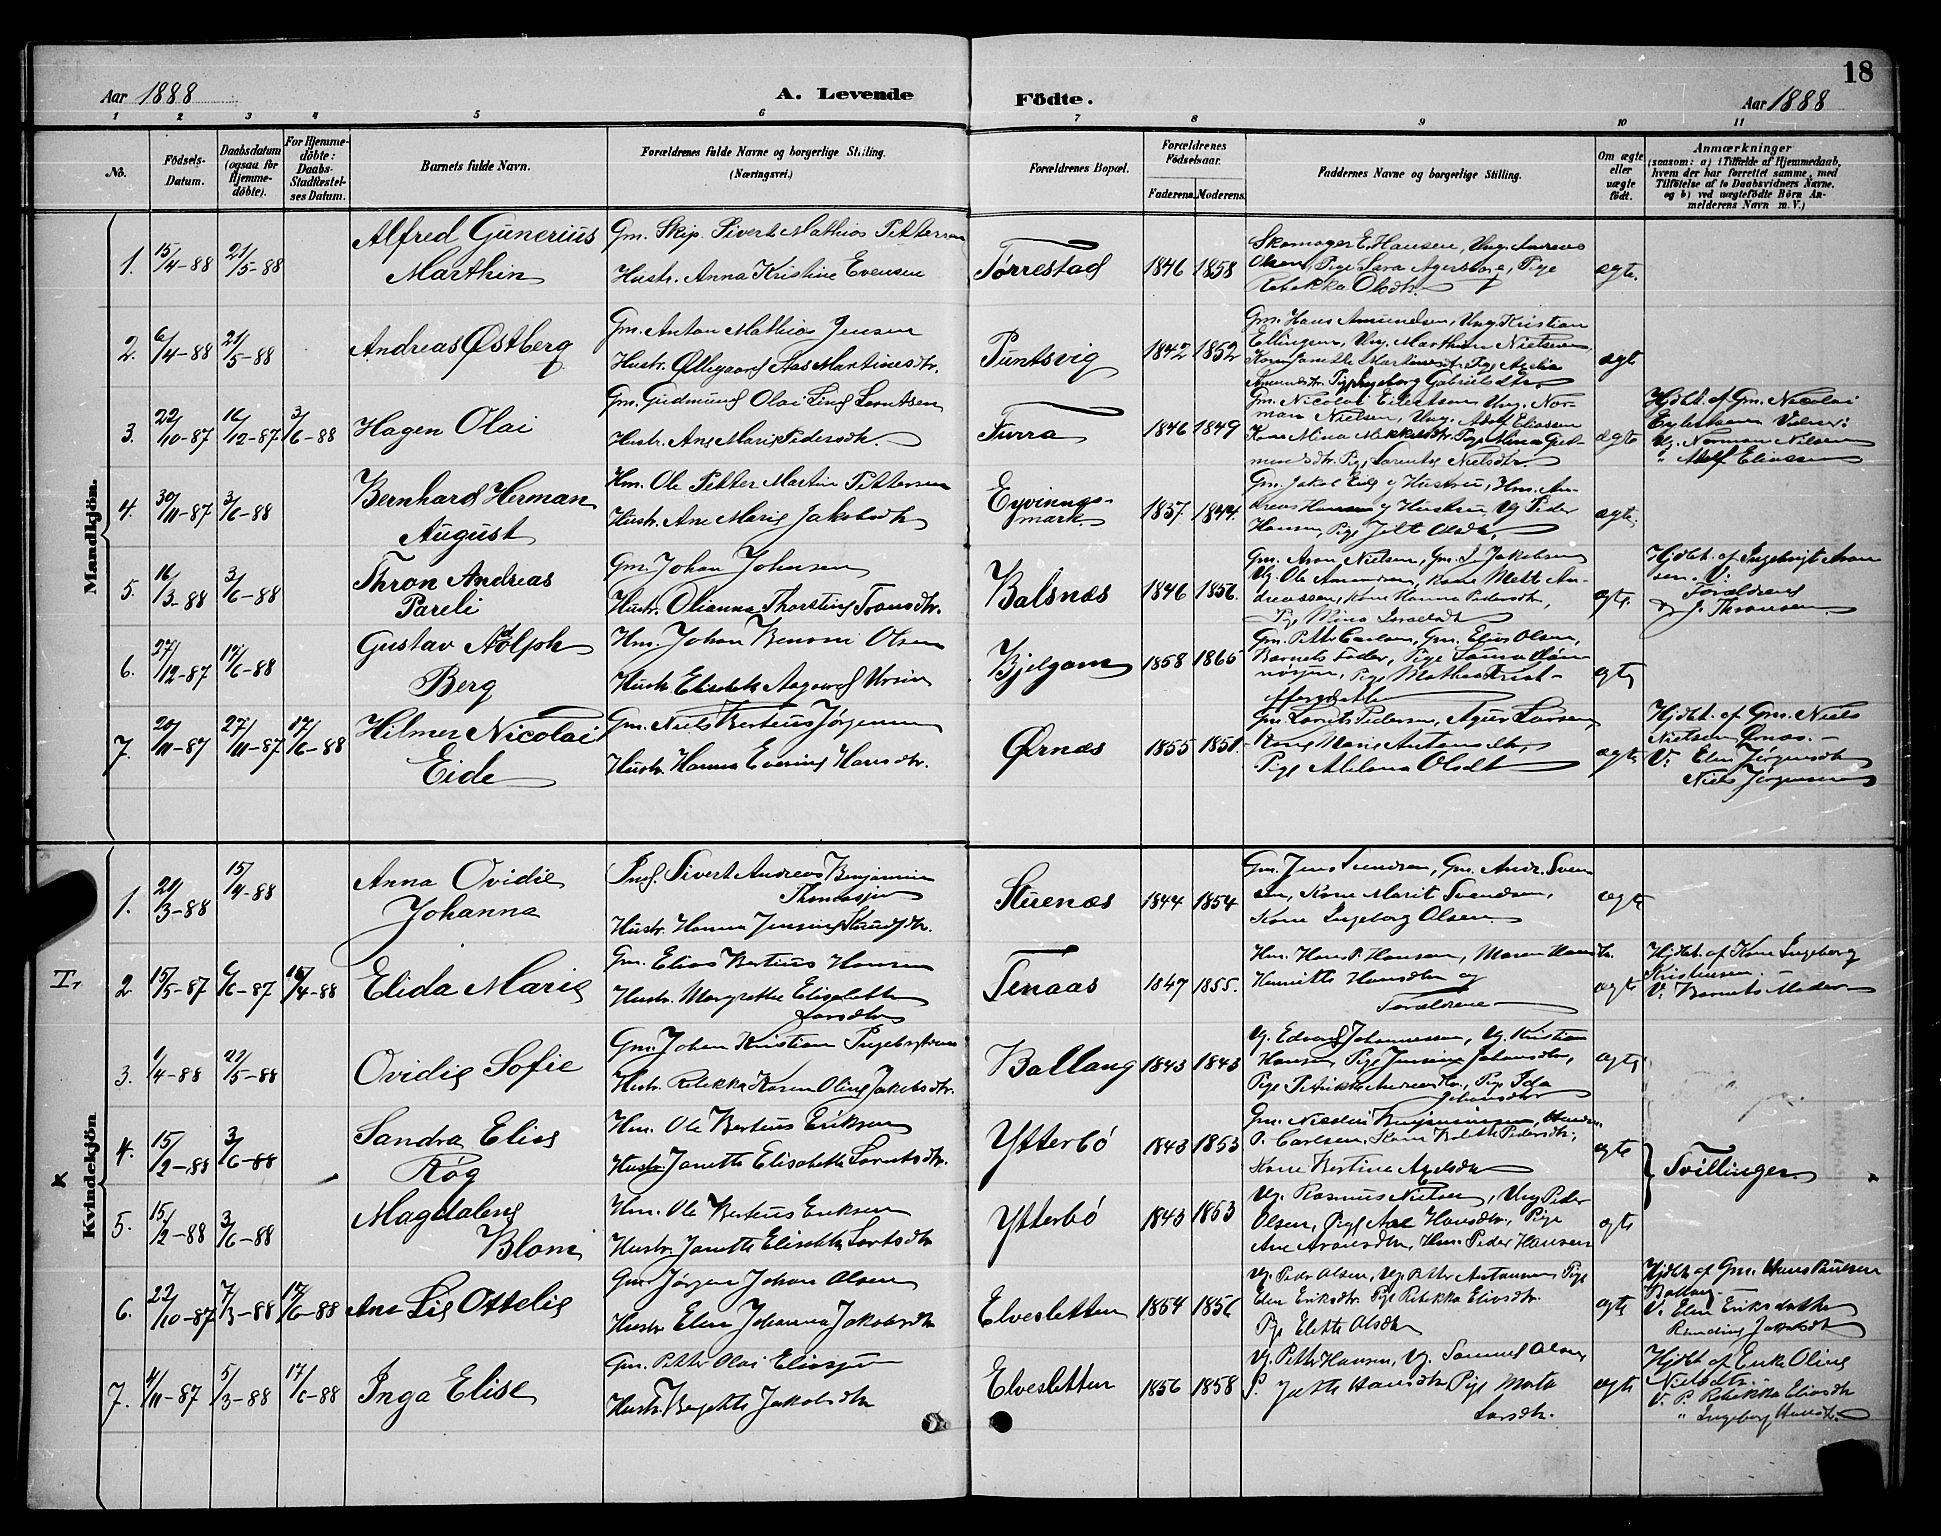 18
Aar 1888
A. Levende Födte.
Aar 1888
1 2 3 4 5 6 7 8 9 10 11
No.
Födsels-Datum.
Daabsdatum (ogsaa for Hjemme-döbte).
For Hjemme-döbte: Daabs-Stadfæstel-ses Datum.
Barnets fulde Navn.
Forældrenes fulde Navne og borgerlige Stilling.
(Næringsvei.)
Forældrenes Bopæl.
Forældrenes Födselsaar.
Faderens. Moderens.
Faddernes Navne og borgerlige Stilling.
Om ægte eller uægte födt.
Anmærkninger
(saasom: a) i Tilfælde af Hjemmedaab,
hvem der har forrettet samme, med
Tilföielse af to Daabsvidners Navne,
og b) ved uægtefödte Börn An-
melderens Navn m. V.)
Mandkjön.
1. 15/4-88 21/5-88 Alfred Gunerius Marthin
Gm. Skip. Sivert Mathias Pettersen
Hustr. Anna Kristine Evensen
Tørrestad 1846 1858
Skomager E. Hansen, Ung. Andreas
Olsen, Pige Sara
Rebekka Olsdtr.
ægte.
2. 6/4-88 21/5-88 Andreas Østberg
Gm. Anton Mathias Jensen
Hustr. Ollegaard Aas Martinesdtr.
Puntsvig 1842 1852
Gm. Hans Amundsen, Ung. Kristian
Ellingsen, Ung. Marthin Nielsen,
Pige Ingeborg Gabrielsdtr
ægte
3. 22/10-87 16/12-87 3/6-88 Hagen Olai
Gm. Gudmund Olai Lind Lorntsen
Hustr. Ane Marie Pedersdtr.
Turra 1846 1849
Gm. Nicolai Eilertsen Ung. Nor-
man Nielsen, Ung. Adolf Eliassen
Kone Mina Mikkelsdtr. Pige Mina Gud-
mundsdtr. Pige Lorentse Nielsdtr.
ægte
Hjdbt. af Gm. Nicolai
Eylertsen Vidner:
Ug. Norman Nilsen
" Adolf Eliassen
4. 30/11-87 3/6-88 Bernhard Herman August
Hm. Ole Petter Martin Pettersen
Hustr. Ane Marie Jakobsdtr
Eyvinds-
mark 1857 1844.
Gm. Jakob og Hustru, Hm. An-
dreas Hansen og Hustru, Ug. Peder
Hansen, Pige Olsdtr.
ægte.
5. 16/3-88 3/6-88 Thron Andreas Pareli
Gm. Johan Johansen
Hustr. Olianna Thorstine Tronsdtr.
Balsnæs 1846 1856
Gm. Aron Nielsen, Gm. J. Jakobsen
Ug. Ole Amundsen, Kone Mette An-
dreassen, Kone Hanna Pedersdtr,
Pige Mina Israelsdtr
ægte.
Hjdbt. af Ingebrigt Aron
sen. V:
Forældrene
og J. Thronsen
6. 27/12-87 17/6-88 Gustav Adolph Berg
Hm. Johan Benoni Olsen
Hustr. Elisabeth Aagaard
Bjelgam 1858 1865
Gm. Petter Carlsen, Gm. Elias Olsen,
Barnets Fader, Pige
Pige Mathea Krist-
offersdatter
ægte
7. 20/11-87 27/11-87 17/6-88 Hilmer Nicolai Eide
Gm. Niels Berteus Jørgensen
Hustr. Hanna Evening Hansdtr.
Ørnæs 1855 1851
Gm. Lornts Pedersen, Agur Larsen,
Kone Marie Antonsdtr,
Pige Abelona Olsdtr
ægte
Hjdbt. af Gm. Niels
Nielsen Ørnæs. -
V: Elen Jørgensdtr
Niels Jørgensen
Kvindekjön
1. 20/3-88 15/4-88 Anna Ovidie Johanna
Sivert Andreas Benjamin
Thomassen
Hustr. Hanna Jensine
Stuenæs 1844 1854
Gm. Jens Svendsen, Gm. Andr. Sven-
sen, Kone Marit Svendsen,
Kone Ingeborg Olsen
ægte
T.
2. 15/5-87 6/6-87 15/4-88 Elida Marie
Gm. Elias Berteus Hansen
Hustr. Margrethe Elisabeth
Larsdtr
Tenaas 1847 1855.
Hm. Hans P. Hansen, Maren Hansdtr.
Henriette Hansdtr og
Forældrene
ægte
Hjdbt. af Kone Ingeborg
Kristiansen.
V. Barnets Moder
3. 1/4-88 22/5-88 Ovidie Sofie
Gm. Johan Kristian Ingebrigtsen
Hustr. Rebekka Karen Oline Jakobsdtr.
Ballang 1843 1843
Ug. Edvard Johannessen, Ug. Kristian
Hansen Pige Jensine Johansdtr,
Pige Petrikke Andreasdtr., Pige Ida
Johansdtr
ægte
4. 15/2-88 3/6-88 Sandra Elise Røg
Hm. Ole Berteus Eriksen
Hustr. Janette Elisabeth Lorntsdtr.
Ytterbö 1843 1853
Gm. Nicolai Benjaminsen,
P. Carlsen, Kone Pedersdtr,
Kone Bertine Axelsdtr
ægte
Tvillinger
5. 15/2-88 3/6-88 Magdalene Blom
Hm. Ole Berteus Eriksen
Hustr. Janette Elisabeth Lorntsdtr
Ytterbö 1843 1853
Ug. Rasmus Nielsen, Ung Peder
Olsen, Pige Hansdtr, Pige
Ane Aronsdtr, Hm. Peder Hansen
ægte
6. 22/10-87 7/3-88 17/6-88 Ane Lie Ottelie
Gm. Jørgen Johan Olsen
Hustr. Elen Johanna Jakobsdtr
Elvesletten 1854 1856
Ug. Peder Olsen, Ug. Petter Antonsen Pige
Elen Eriksdtr Pige Rebekka Eliasdtr.
Pige Elette Olsdtr
ægte
Hjdbt af Gm. Hans Paulsen
Ballang
V. Elen Eriksdatter
Jakobsdtr
7. 4/11-87 5/3-88 17/6-88 Inga Elise
Gm. Petter Olai Eliassen
Hustr. Bergette Jakobsdtr
Elvesletten 1856 1858
Ug. Petter Hansen, Ug. Samuel Olsen
P. Hansdtr Pige Marta
Larsdtr.
ægte
Hjdbt af Enke Oline
Nielsdtr.
V. P. Rebekka Eliasdtr
" Ingeborg Hansdtr.